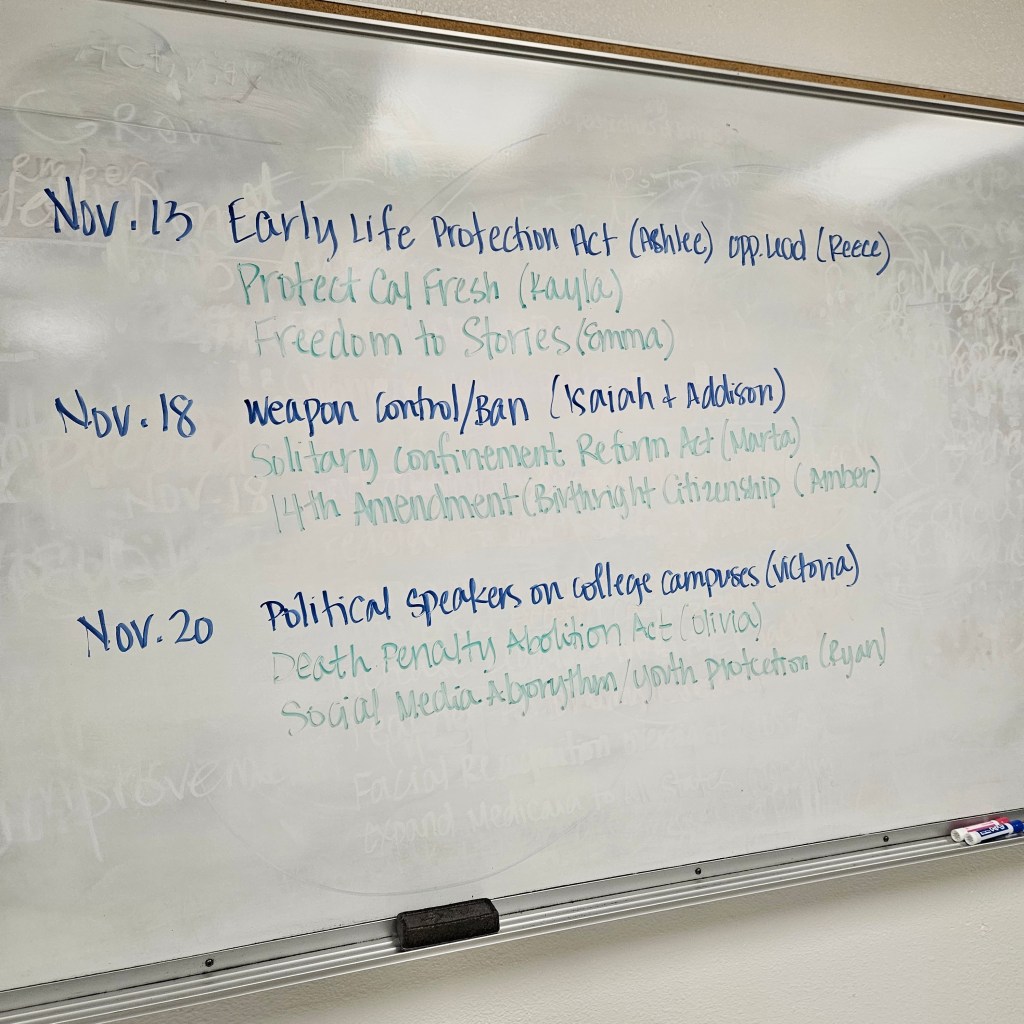 Nov. 13 Early Life Protection Act (Ashlee) opp. lead (Reece)
Protect Cal Fresh (Kayla)
Freedom to Stories (Emma)
Nov. 18 Weapon Control/Ban (Isaiah + Addison)
Solitary Confinement Reform Act (Marta)
14th Amendment (Birthright Citizenship (Amber)
Nov. 20 Political speakers on college campuses (Victoria)
Death Penalty Abolition Act (Olivia)
Social Media Algorythm/youth protection (Ryan)
Facial
Expand Medicare
improve